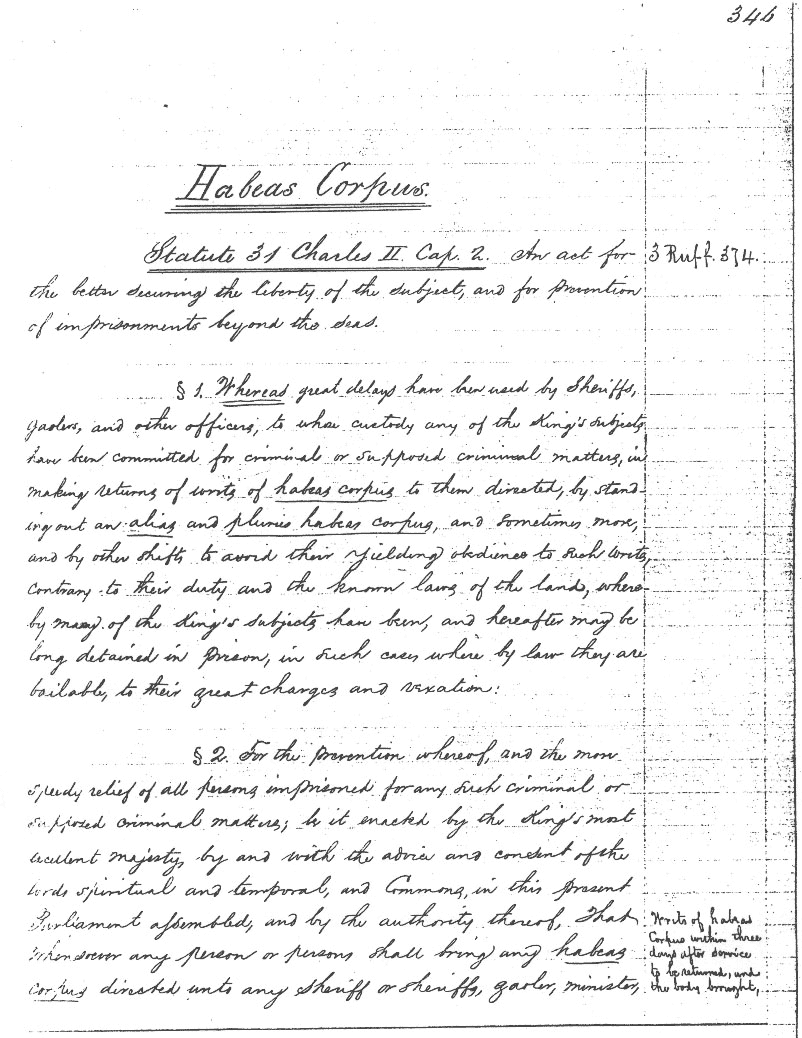 346
Habeas Corpus.
Statute 31 Charles II Cap. 2. An act for
3 Ruff. 374.
the better securing the liberty of the subject, and for prevention
of imprisonments beyond the seas.
§ 1. Whereas great delays have been used by Sheriffs,
gaolers, and other officers, to whose custody any of the King's subjects
have been committed for criminal or supposed criminal matters, in
making returns of writs of habeas corpus to them directed, by stand-
ing out an alias and pluries habeas corpus, and sometimes more,
and by other shifts to avoid their yielding obedience to such writs,
contrary to their duty and the known laws of the land, where-
by many of the King's subjects have been, and hereafter may be
long detained in Prison, in such cases where by law they are
bailable, to their great charges and vexation:
§ 2. For the prevention whereof, and the more
speedy relief of all persons imprisoned for any such criminal or
supposed criminal matters; be it enacted by the King's most
excellent majesty, by and with the advice and consent of the
lords spiritual and temporal, and Commons, in this present
Parliament assembled, and by the authority thereof, That
whensoever any person or persons shall bring any habeas
corpus directed unto any Sheriff or sheriffs, gaoler, minister,
Writs of habeas
Corpus within three
days after service
to be returned, and
the body brought,